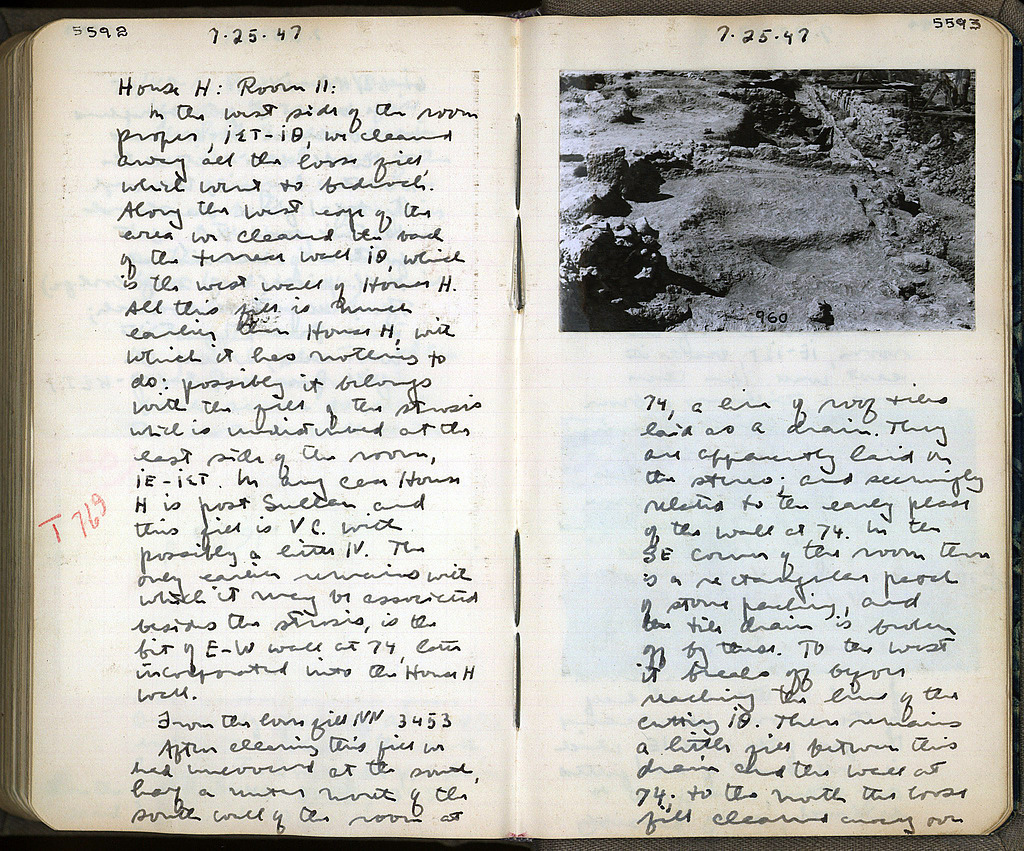 5592
7.25.47
House H: Room 11:
In the west side of the room
proper, ΙΣΤ-ΙΘ, we cleared
away all the loose fill,
which went to bedrock.
Along the west edge of the
area we cleared the back
of the terrace wall ΙΘ, which
is the west wall of House H.
All this fill is much
earlier than House H, with
which it has nothing to
do: possibly it belongs
with the fill of the strosis
which is undisturbed at the
east side of the room,
ΙΕ-ΙΣΤ. In any case House
H is post Sullan and
this fill is V C. with
possibly a little IV. The
only earlier remains with
which it may be associated
besides the strosis, is the
bit of E-W wall at 74, later
incorporated into the House H
wall.
T 769
From the loose fill NN 3453
After clearing this fill we
had uncovered at the south,
half a meter north of the
south wall of the room at
5593
7.25.47
960
74, a line of roof tiles
laid as a drain. They
are apparently laid in
the stereo; and seemingly
related to the early phase
of the wall at 74. In the
SE corner of the room there
is a rectangular patch
of stone packing, and
the tile drain is broken
off by these. To the west
it breaks off before
reaching the line of the
cutting ΙΘ. There remains
a little fill between this
drain and the wall at
74. To the north the loose
fill cleared away over